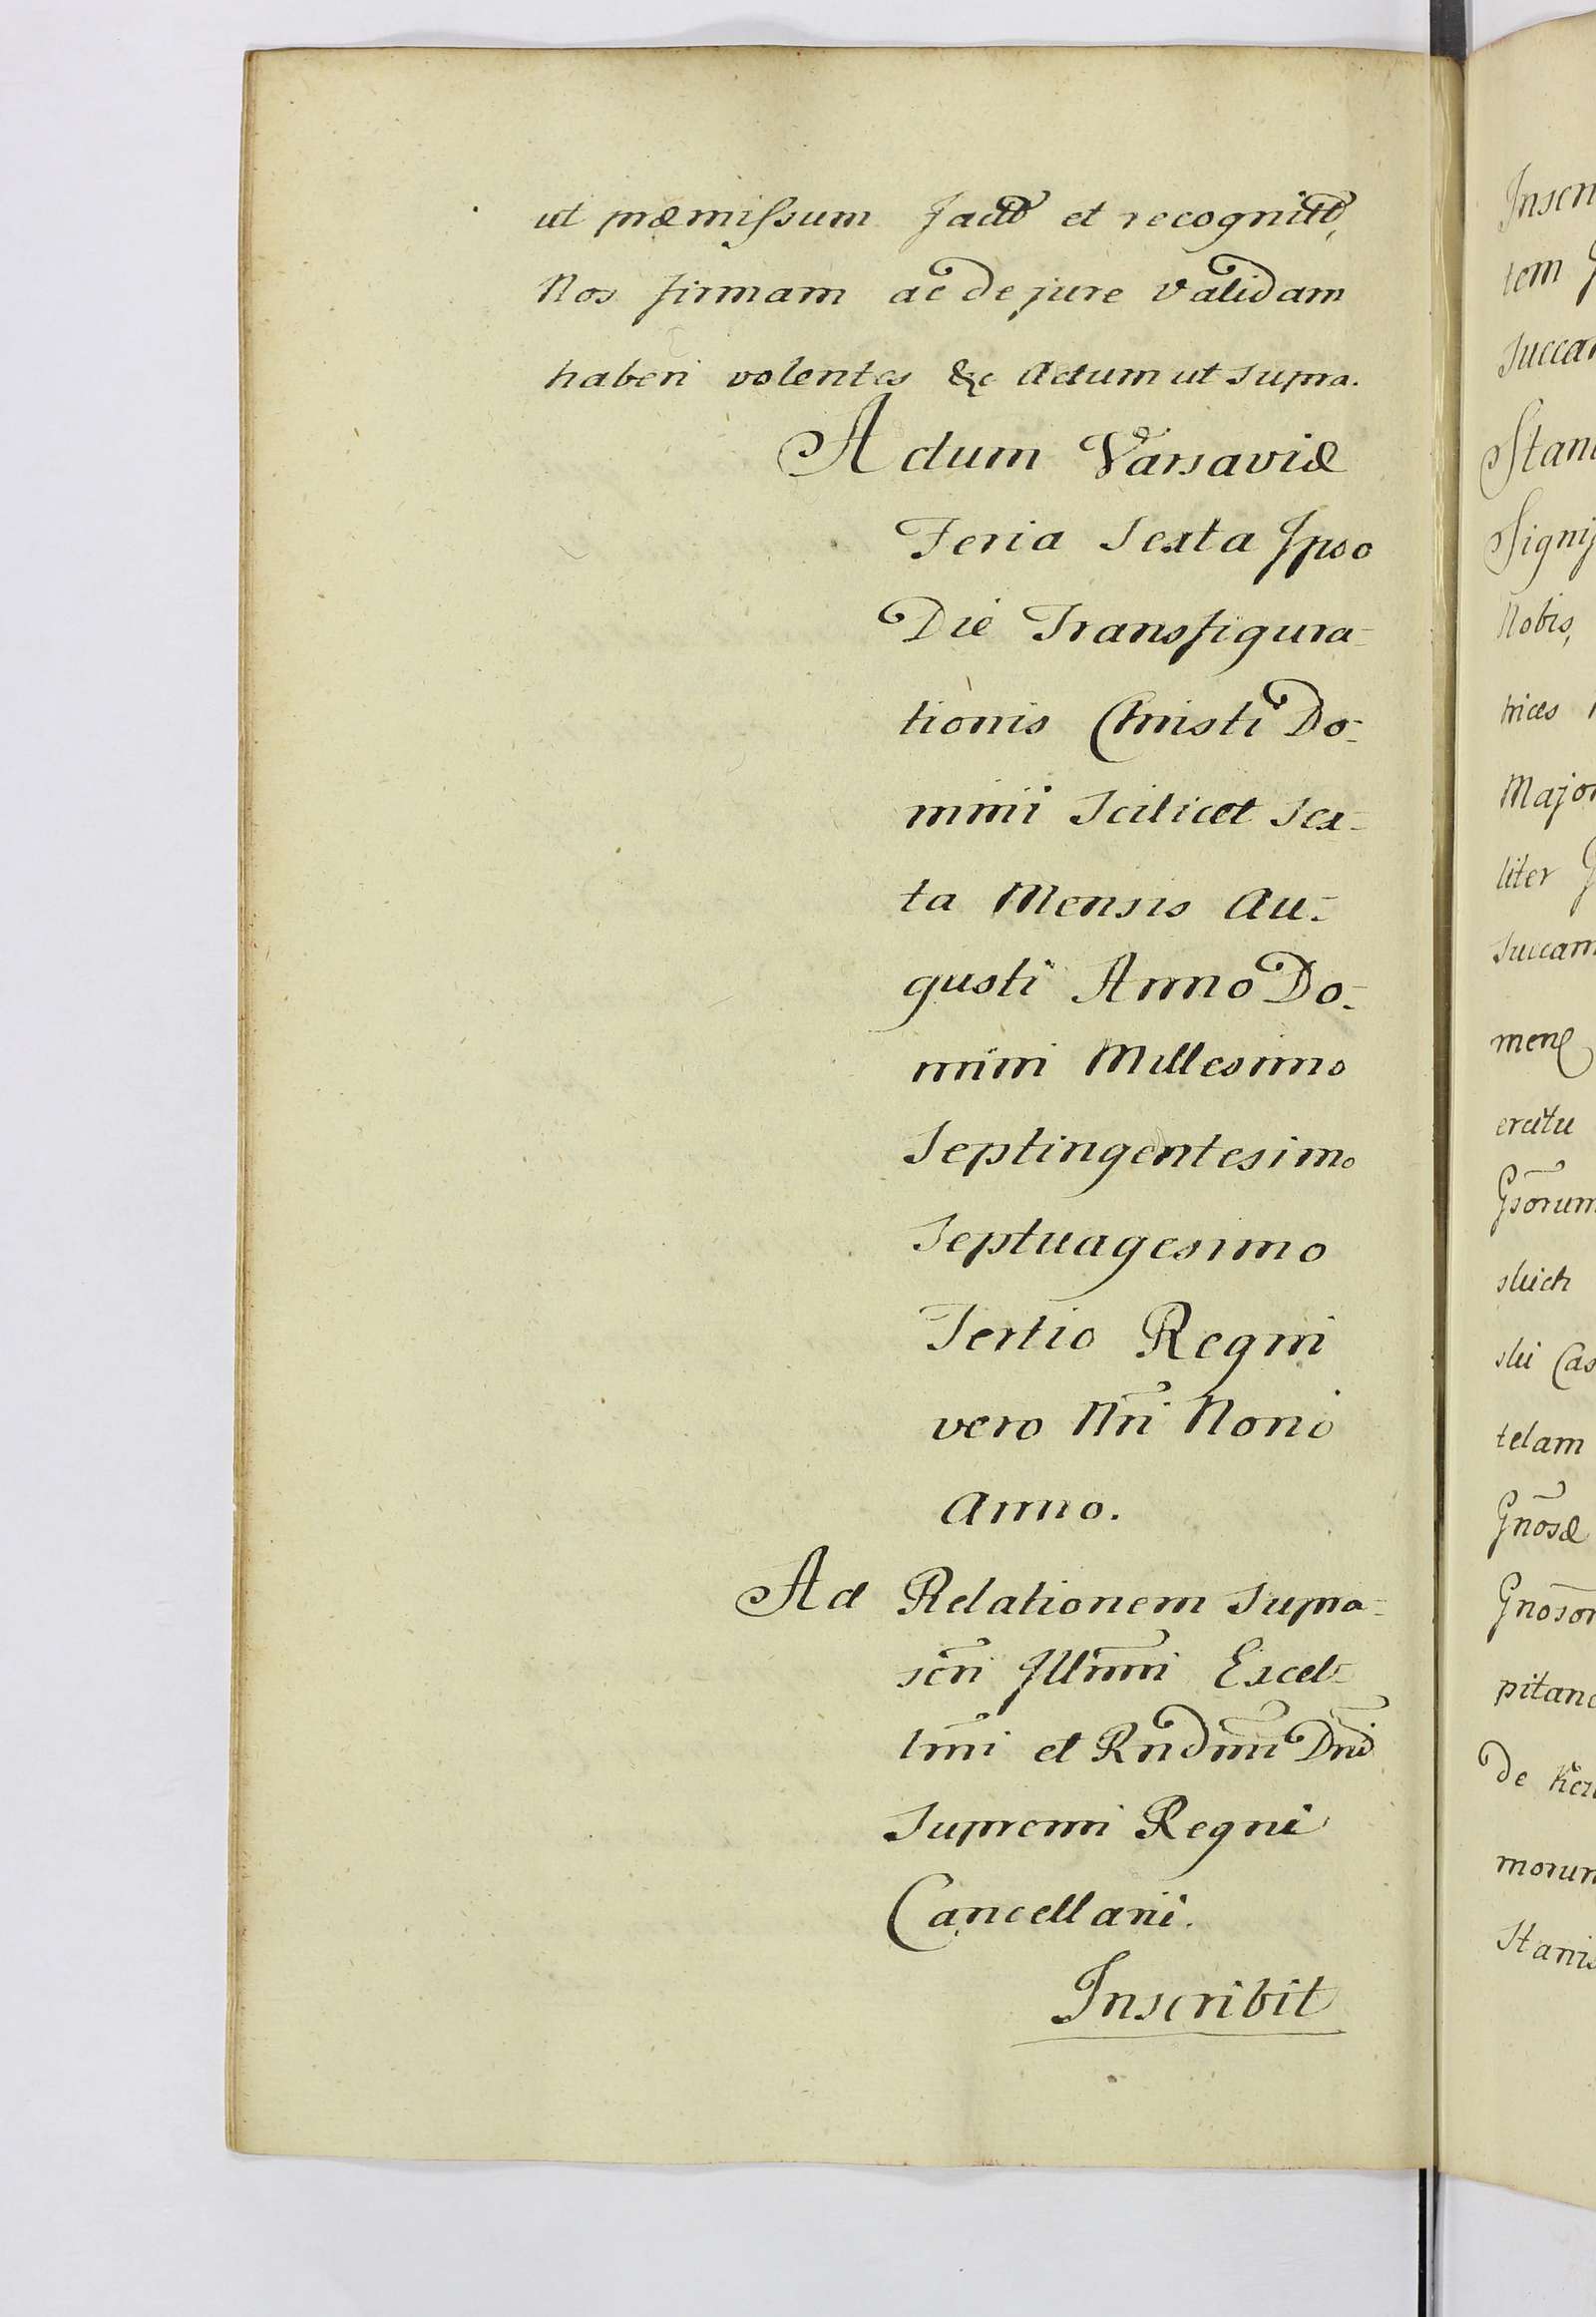 ut præmissum factã et recognitã,
Nos firmam ac de jure validam
haberi volentes &c Actum ut supra.
Actum Varsaviæ
Feria Sexta Ipso
Die Transfigura=
tionis Christi Do=
mini Scilicet Sex=
ta Mensis Au=
gusti Anno Do=
mini Millesimo
Septingentesimo
Septuagesimo
Tertio Regni
vero Nri Nono
Anno.
Ad Relationem supra=
scri Illmmi Excel=
lmi et Rndmi Dni
Supremi Regni
Cancellarii.
Inscribit
tem
Succam
Stani
Signif
Nobis,
trices
Major
liter
Succam
ercitu
Gsorum
skich
ski Cas
telam
Gnosæ
Gnosor
pitane
de
morum
Stanis